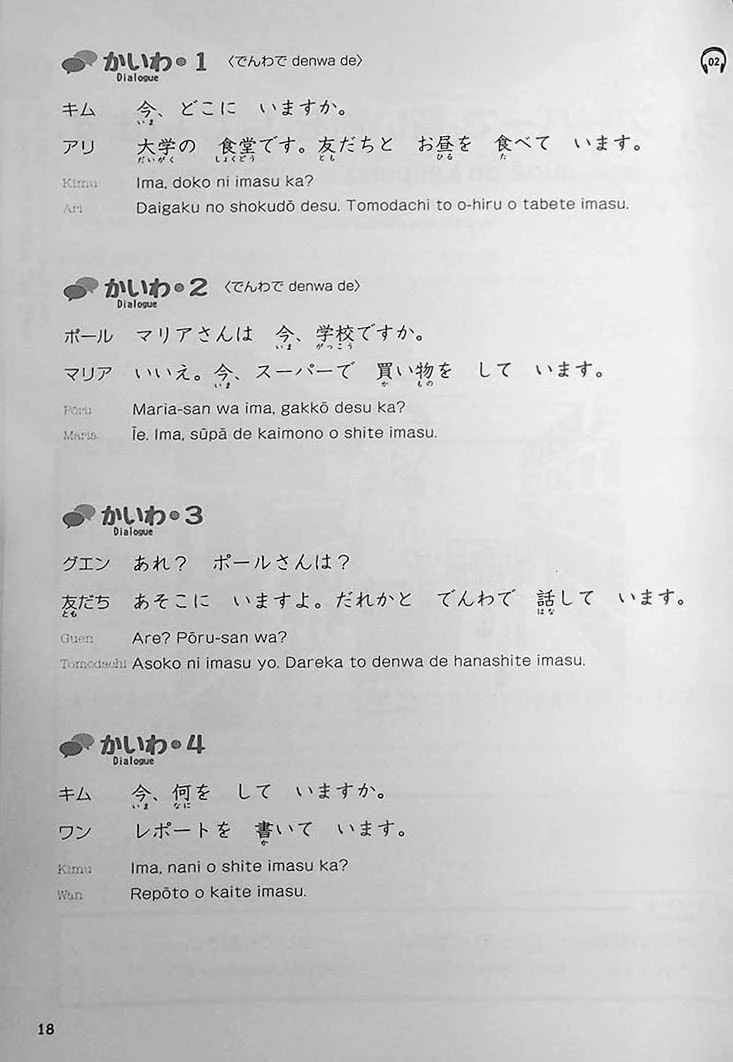 かいわ・1 〈でんわで denwa de〉
Dialogue
02
キム 今、どこに いますか。
いま
アリ 大学の 食堂です。友だちと お昼を 食べて います。
だいがく しょくどう とも ひる た
Kimu Ima, doko ni imasu ka?
Ari Daigaku no shokudō desu. Tomodachi to o-hiru o tabete imasu.
かいわ・2 〈でんわで denwa de〉
Dialogue
ポール マリアさんは 今、学校ですか。
いま がっこう
マリア いいえ。今、スーパーで 買い物を して います。
いま か もの
Pōru Maria-san wa ima, gakkō desu ka?
Maria Īe. Ima, sūpā de kaimono o shite imasu.
かいわ・3
Dialogue
グエン あれ? ポールさんは?
友だち あそこに いますよ。だれかと でんわで 話して います。
とも はな
Guen Are? Pōru-san wa?
Tomodachi Asoko ni imasu yo. Dareka to denwa de hanashite imasu.
かいわ・4
Dialogue
キム 今、何を して いますか。
いま なに
ワン レポートを 書いて います。
か
Kimu Ima, nani o shite imasu ka?
Wan Repōto o kaite imasu.
18